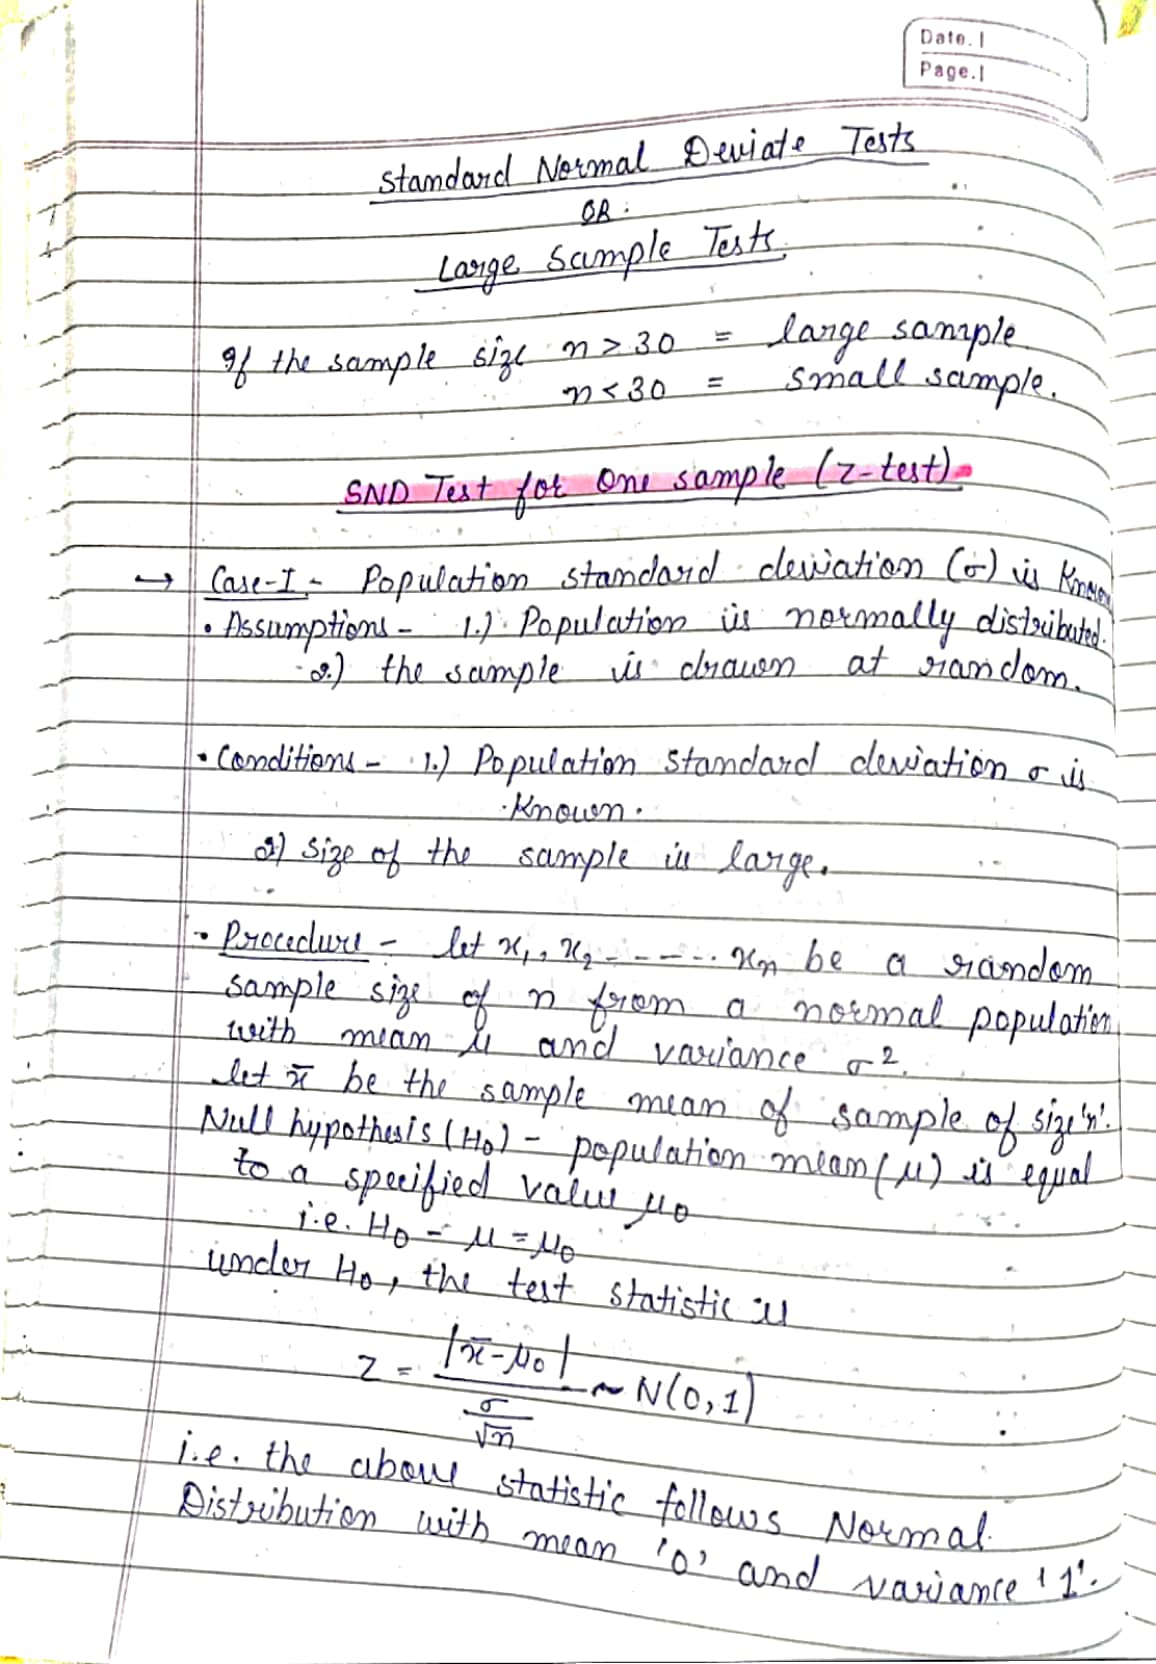 Date.
Page.
Standard Normal Deviate Tests
OR
Large Sample Tests
If the sample size n > 30 = large sample
n < 30 = small sample.
SND Test for One sample (z-test)
→ Case-I - Population standard deviation (σ) is Known
• Assumptions - 1.) Population is normally distributed.
2.) the sample is drawn at random.
• Conditions - 1.) Population Standard deviation σ is
Known.
2) size of the sample is large.
• Procedure - let x₁, x₂ - - - - .. xₙ be a random
sample size of n from a normal population
with mean μ and variance σ².
let x̄ be the sample mean of sample of size 'n'.
Null hypothesis (H₀) - population mean (μ) is equal
to a specified value μ₀
i.e. H₀ - μ = μ₀
under H₀, the test statistic is
z = |x̄ - μ₀| / (σ/√n) ~ N(0, 1)
i.e. the above statistic follows Normal
Distribution with mean '0' and variance '1'.